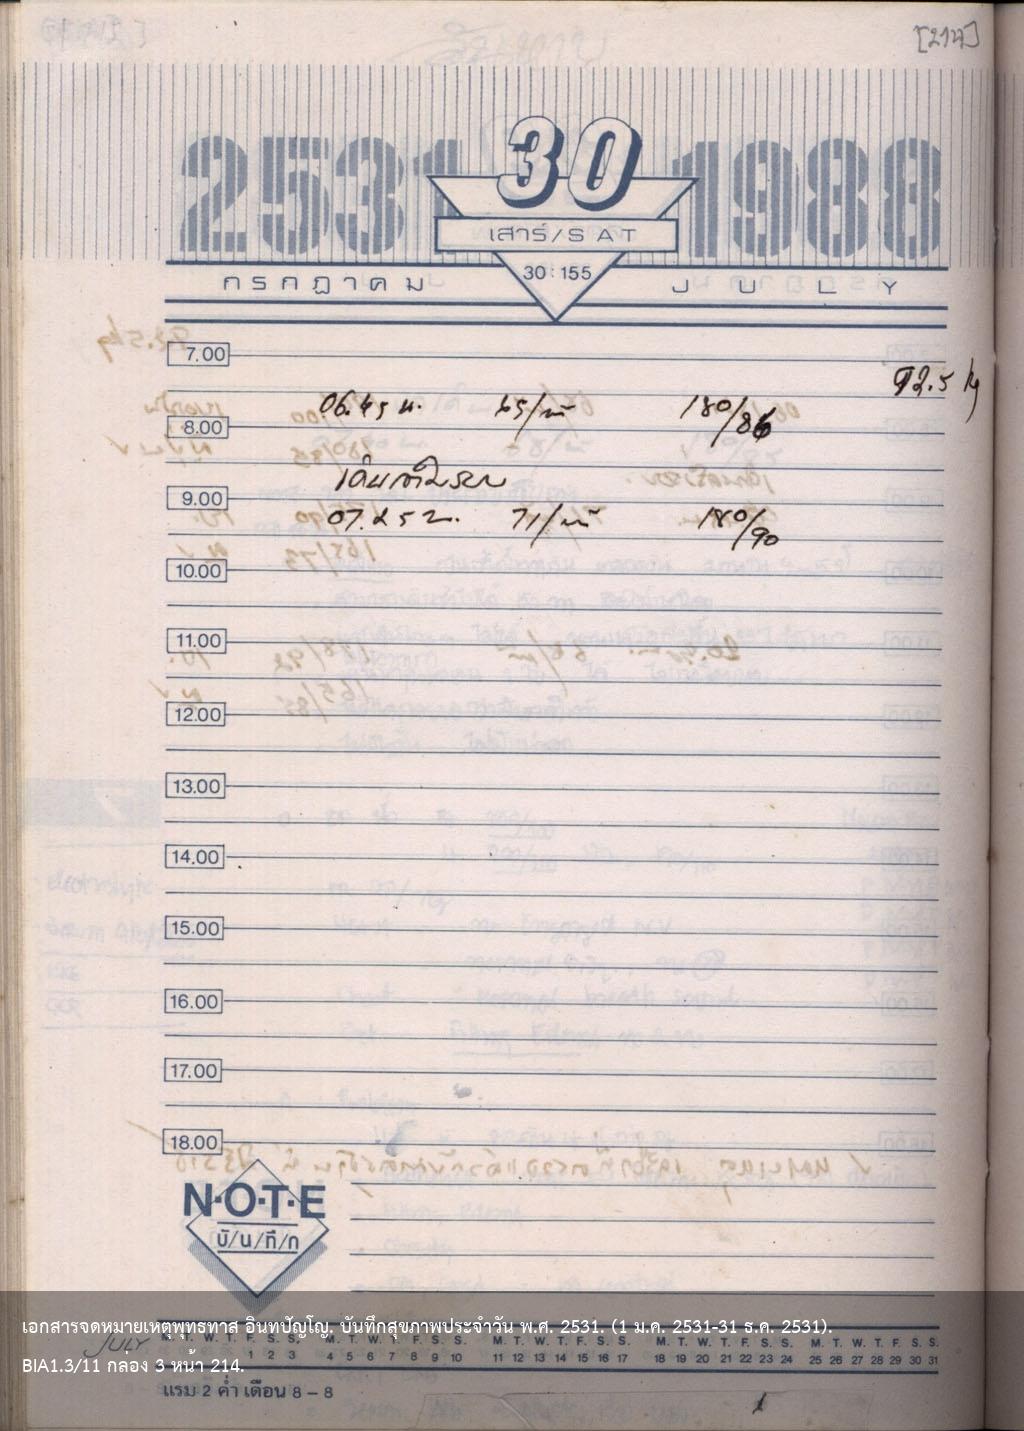 [214]
2531
30
1988
เสาร์/SAT
30:155
กรกฎาคม
JULY
7.00
92.5 kg
06.45 น. 65/นาที 180/86
8.00
เดินสามรอบ
9.00
07.25 น. 71/นาที 180/90
10.00
11.00
12.00
13.00
14.00
15.00
16.00
17.00
18.00
N·O·T·E
บั/น/ทึ/ก
เอกสารจดหมายเหตุพุทธทาส อินทปัญโญ. บันทึกสุขภาพประจำวัน พ.ศ. 2531. (1 ม.ค. 2531-31 ธ.ค. 2531).
JULY M. T. W. T. F. S. S. M. T. W. T. F. S. S. M. T. W. T. F. S. S. M. T. W. T. F. S. S. M. T. W. T. F. S. S.
1 2 3 4 5 6 7 8 9 10 11 12 13 14 15 16 17 18 19 20 21 22 23 24 25 26 27 28 29 30 31
BIA1.3/11 กล่อง 3 หน้า 214.
แรม 2 ค่ำ เดือน 8 – 8